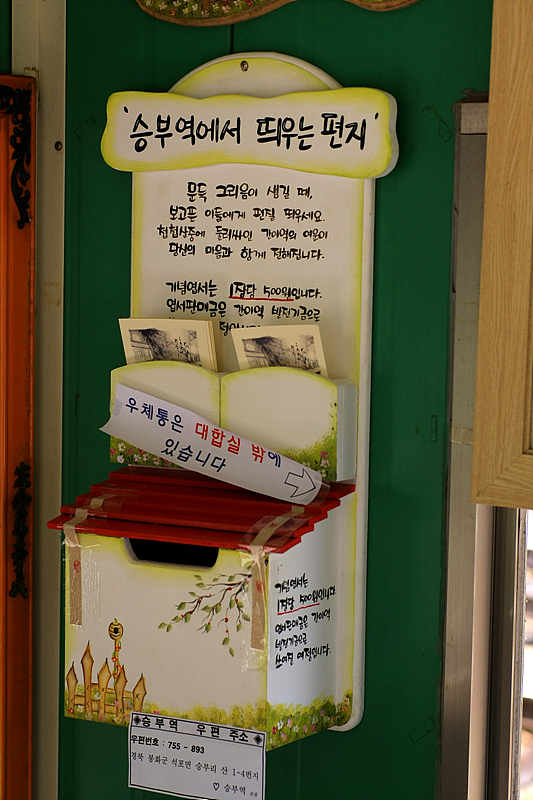 '승부역에서 띄우는 편지'
문득 그리움이 생길 때,
보고픈 이들에게 편질 띄우세요.
첩첩산중에 둘러싸인 간이역의 여운이
당신의 마음과 함께 전해집니다.
기념엽서는 1장당 500원입니다.
엽서판매금은 간이역 발전기금으로
우체통은 대합실 밖에
있습니다
기념엽서는
1장당 500원입니다.
엽서판매금은 간이역
발전기금으로
쓰여질 예정입니다.
승부역 우편 주소
우편번호 : 755 - 893
경북 봉화군 석포면 승부리 산 1-4번지
♡ 승부역